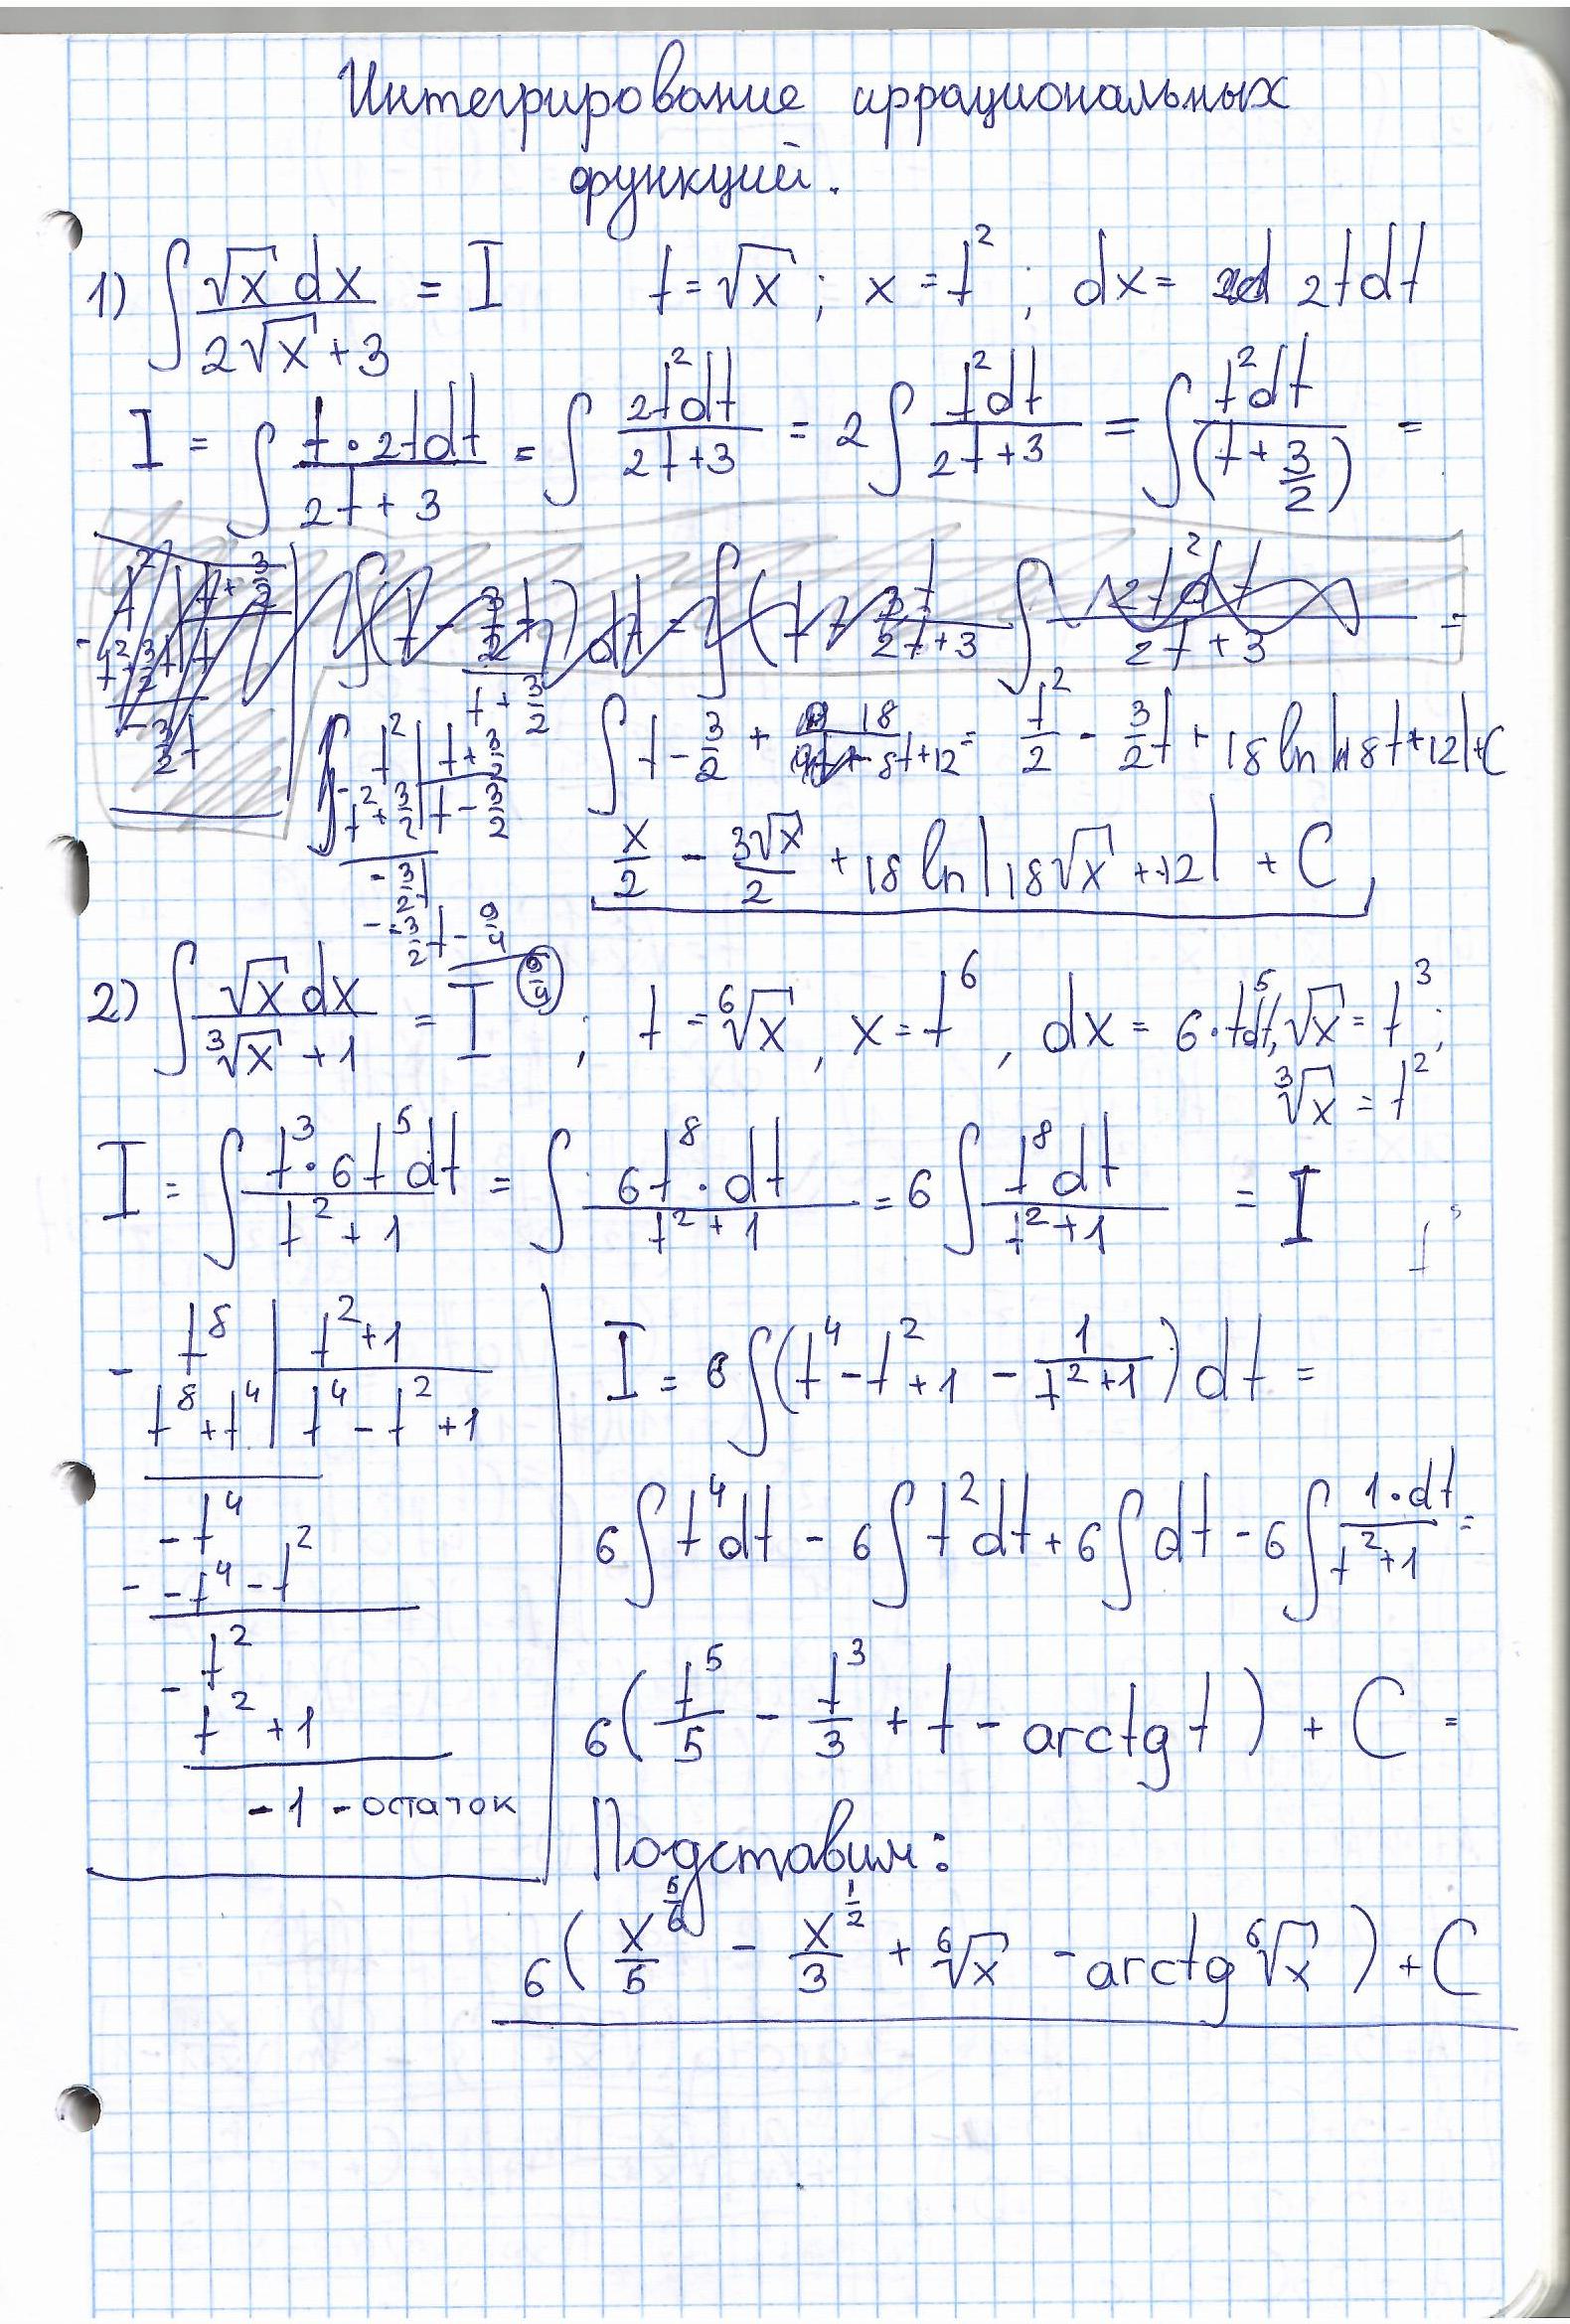 Интегрирование иррациональных
функций.
1) ∫ √x dx / (2√x + 3) = I   t = √x ; x = t² ; dx = 2tdt
I = ∫ t · 2tdt / (2t + 3) = ∫ 2t²dt / (2t + 3) = 2∫ t²dt / (2t + 3) = ∫ t²dt / (t + 3/2) =
∫ t - 3/2 + 18 / 8t+12 = t²/2 - 3/2 t + 18 ln|18t+12|+C
t² | t + 3/2
t² + 3/2 | t - 3/2
- 3/2 t
- - 3/2 t - 9/4
9/4
x/2 - 3√x/2 + 18 ln|18√x + 12| + C
2) ∫ √x dx / (³√x + 1) = I ; t = ⁶√x , x = t⁶ , dx = 6·t⁵dt, √x = t³ ;
³√x = t²
I = ∫ t³ · 6t⁵dt / (t² + 1) = ∫ 6t⁸ · dt / (t² + 1) = 6∫ t⁸dt / (t² + 1) = I
- t⁸ | t² + 1
t⁸ + t⁴ | t⁴ - t² + 1
- t⁴
- - t⁴ - t²
- t²
t² + 1
- 1 - остаток
I = 6∫(t⁴ - t² + 1 - 1/(t² + 1)) dt =
6∫t⁴dt - 6∫t²dt + 6∫dt - 6∫ 1·dt / (t² + 1) =
6(t⁵/5 - t³/3 + t - arctg t) + C =
Подставим:
6(x^(5/6)/5 - x^(1/2)/3 + ⁶√x - arctg ⁶√x) + C